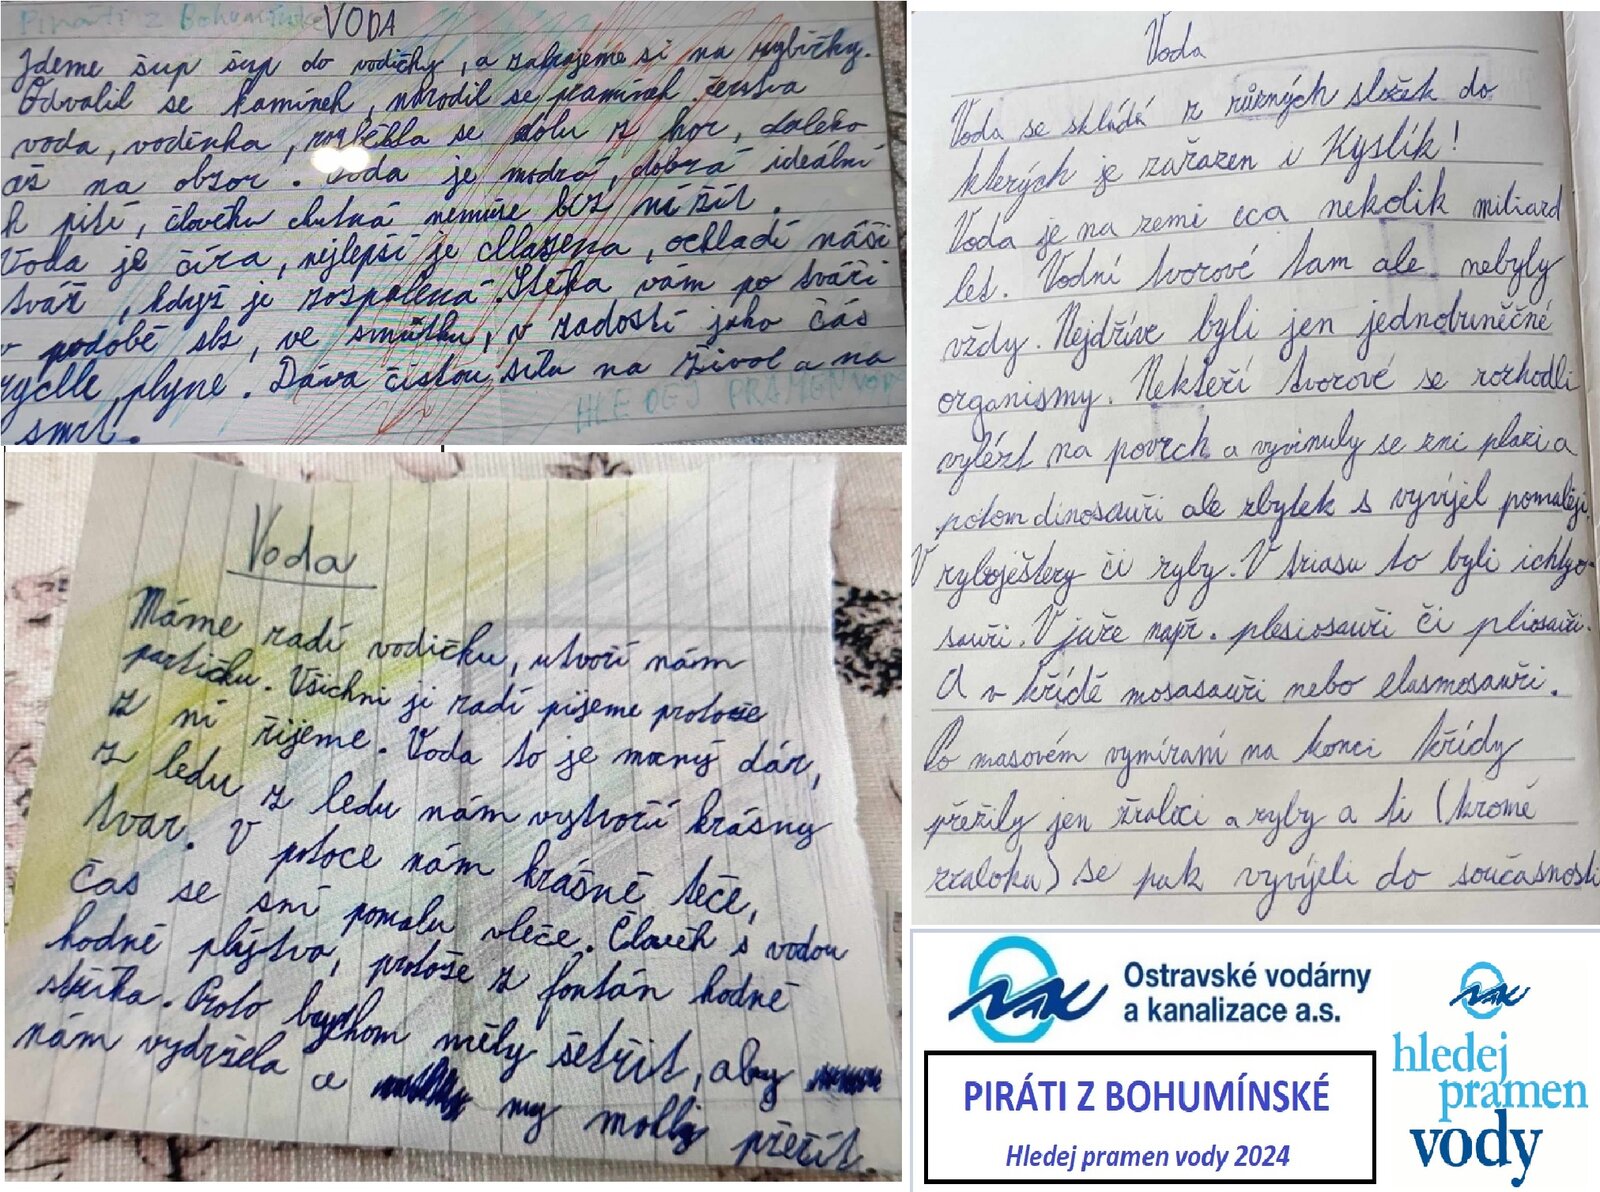 Piráti z Bohumínské
VODA
Jdeme šup šup do vodičky, a zahrajeme si na rybičky.
Odvalil se kamínek, narodil se pramínek čerstva
voda, voděnka, rozběhla se dolu z hor, daleko
až na obzor. Voda je modrá, dobrá ideální
k pití, člověku chutná nemůže bez ní žít.
Voda je číra, nejlepší je chlazena, ochladí náši
tvář, když je rozpálená. Stéka vám po tváři
v podobě slz, ve smutku, v radosti jako čas
rychle plyne. Dáva čistou sílu na život a na
smrt.
HLEDEJ PRAMEN VODY
Voda
Máme radí vodičku, utvoří nám
partičku. Všichni ji radí pijeme protože
z ní žijeme. Voda to je mocný dár,
z ledu z ledu nám vytvoří krásny
tvar. V potoce nám krásně teče,
čas se sní pomalu vleče. Člověk s vodou
hodně plýtva, protože z fontán hodně
stříka. Proto bychom měly šetřit, aby
nám vydržela a my mohly přežít.
Voda
Voda se skládá z různých složek do
kterých je zařazen i Kyslík!
Voda je na zemi cca nekolik miliard
let. Vodní tvorové tam ale nebyly
vždy. Nejdříve byli jen jednobuněčné
organismy. Nekteří tvorové se rozhodli
vylézt na povrch a vyvinuly se zni plazi a
potom dinosauři ale zbytek s vyvíjel pomaleji.
V ryboještery či ryby. V triasu to byli ichtyo-
sauři. V juře např. plesiosauři či pliosauři.
A v křídě mosasauři nebo elasmosauři.
Po masovém vymíraní na konci křídy
přežily jen žraloci a ryby a ti (kromě
žraloku) se pak vyvíjeli do současnosti
Ostravské vodárny
a kanalizace a.s.
PIRÁTI Z BOHUMÍNSKÉ
Hledej pramen vody 2024
hledej
pramen
vody